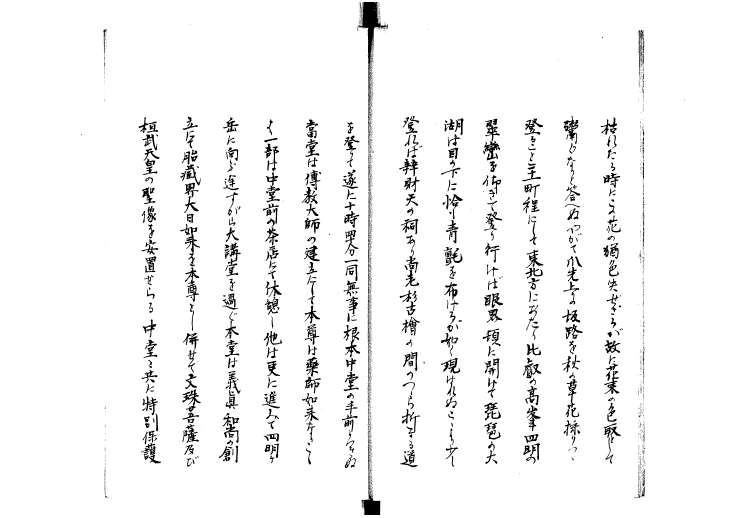 枯れたる時にても花の猶色失せざるが故に花束の色取として
登ること二三町程にして東北方にあたり比叡の高峯四明の
翠巒を仰ぎて登り行けば眼界頓に開けて琵琶の大
湖は目の下に恰も青氈を布けるが如く現はれぬこゝも少し
登れば辨財天の祠あり尚老杉古檜の間のつゞら折なる道
を登りて遂に十時四十分一同無事に根本中堂の手前につきぬ
當堂は傳教大師の建立にして本尊は藥師如來なりこゝに
て一部は中堂前の茶店にて休憩し他は更に進みて四明が
岳に向ふ途すがら大講堂を過ぐ本堂は義眞和尚の創
立にて胎藏界大日如來を本尊とし併せて文珠菩薩及び
桓武天皇の聖像を安置せらる中堂と共に特別保護